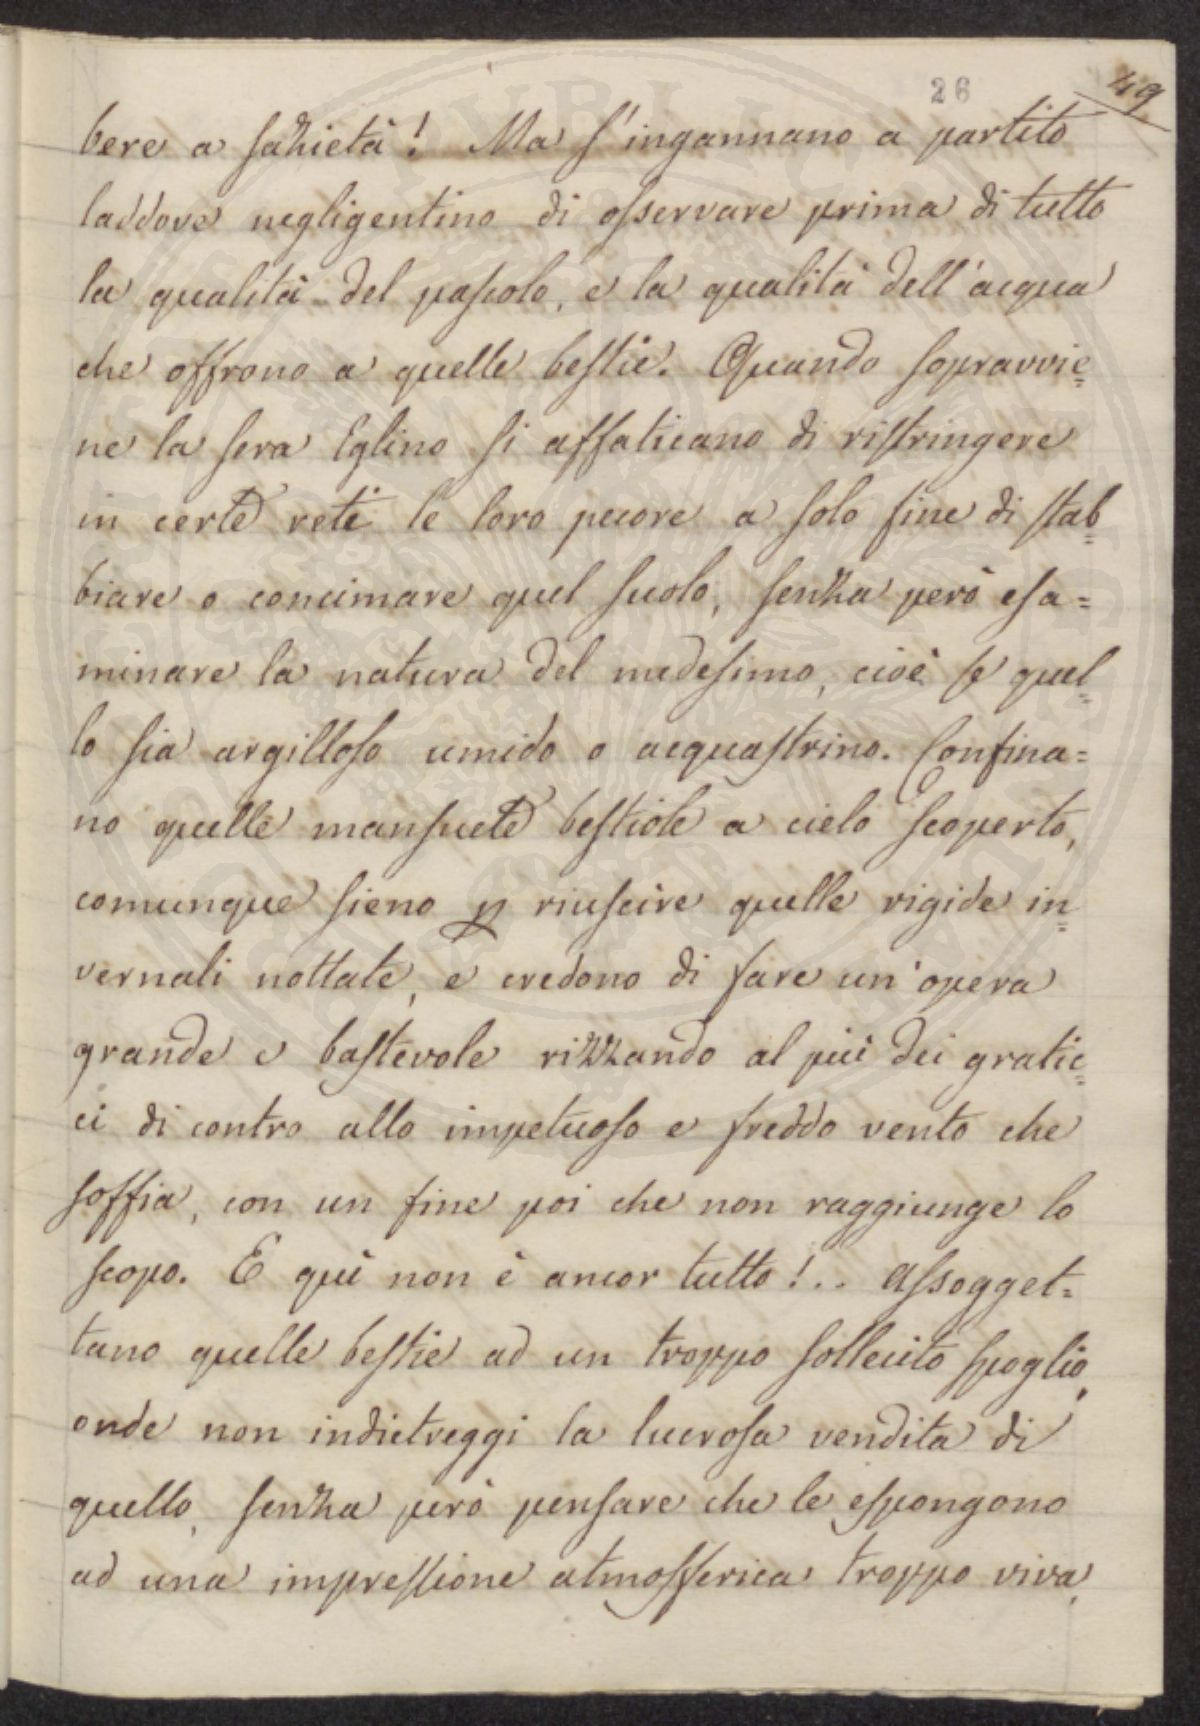 26
49
bere a sazietà! Ma s'ingannano a partito
laddove negligentino di osservare prima di tutto
la qualità del pascolo, e la qualità dell'acqua
che offrono a quelle bestie. Quando sopravvie=
ne la sera Eglino si affaticano di ristringere
in certe reti le loro pecore a solo fine di stab=
biare o concimare quel suolo, senza però esa=
minare la natura del medesimo, cioè se quel=
lo sia argilloso umido o acquastrino. Confina=
no quelle mansuete bestiole a cielo scoperto,
comunque sieno p riuscire quelle rigide in=
vernali nottate, e credono di fare un'opera
grande e bastevole rizzando al più dei gratic=
ci di contro allo impetuoso e freddo vento che
soffia, con un fine poi che non raggiunge lo
scopo. E quì non è ancor tutto!.. Assogget=
tano quelle bestie ad un troppo sollecito spoglio,
onde non indietreggi la lucrosa vendita di
quello, senza però pensare che le espongono
ad una impressione atmosferica troppo viva,